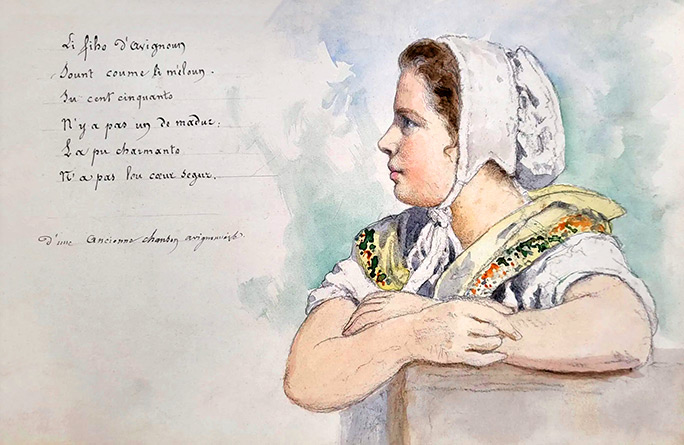 Li fiho d'Avignoun
Sount coume li meloun.
Su cent cinquanto
N'y a pas un de madur:
La pu charmanto
N'a pas lou cœur segur.
d'une ancienne chanson avignonnaise